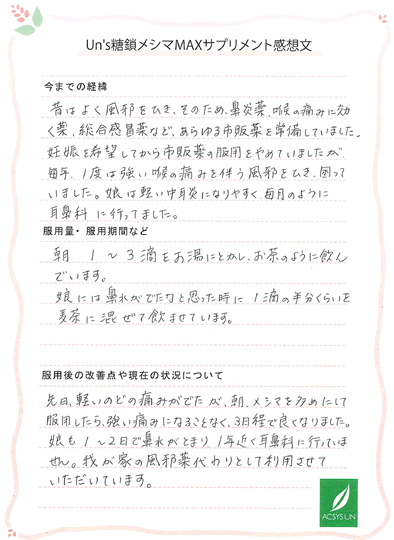 Un's糖鎖メシマMAXサプリメント感想文
今までの経緯
昔はよく風邪をひき、そのため、鼻炎薬、喉の痛みに効
く薬、総合感冒薬など、あらゆる市販薬を常備していました。
妊娠を希望してから市販薬の服用をやめていましたが、
毎年、1度は強い喉の痛みを伴う風邪をひき、困って
いました。娘は軽い中耳炎になりやすく毎月のように
耳鼻科に行ってました。
服用量・服用期間など
朝 1～3滴をお湯にとかし、お茶のように飲ん
でいます。
娘には鼻水がでたなと思った時に1滴の半分くらいを
麦茶に混ぜて飲ませています。
服用後の改善点や現在の状況について
先日、軽いのどの痛みがでたが、朝、メシマを多めにして
服用したら、強い痛みになることなく、3日程で良くなりました。
娘も1～2日で鼻水がとまり、1年近く耳鼻科に行っていま
せん。我が家の風邪薬代わりとして利用させて
いただいています。
ACSYS UN